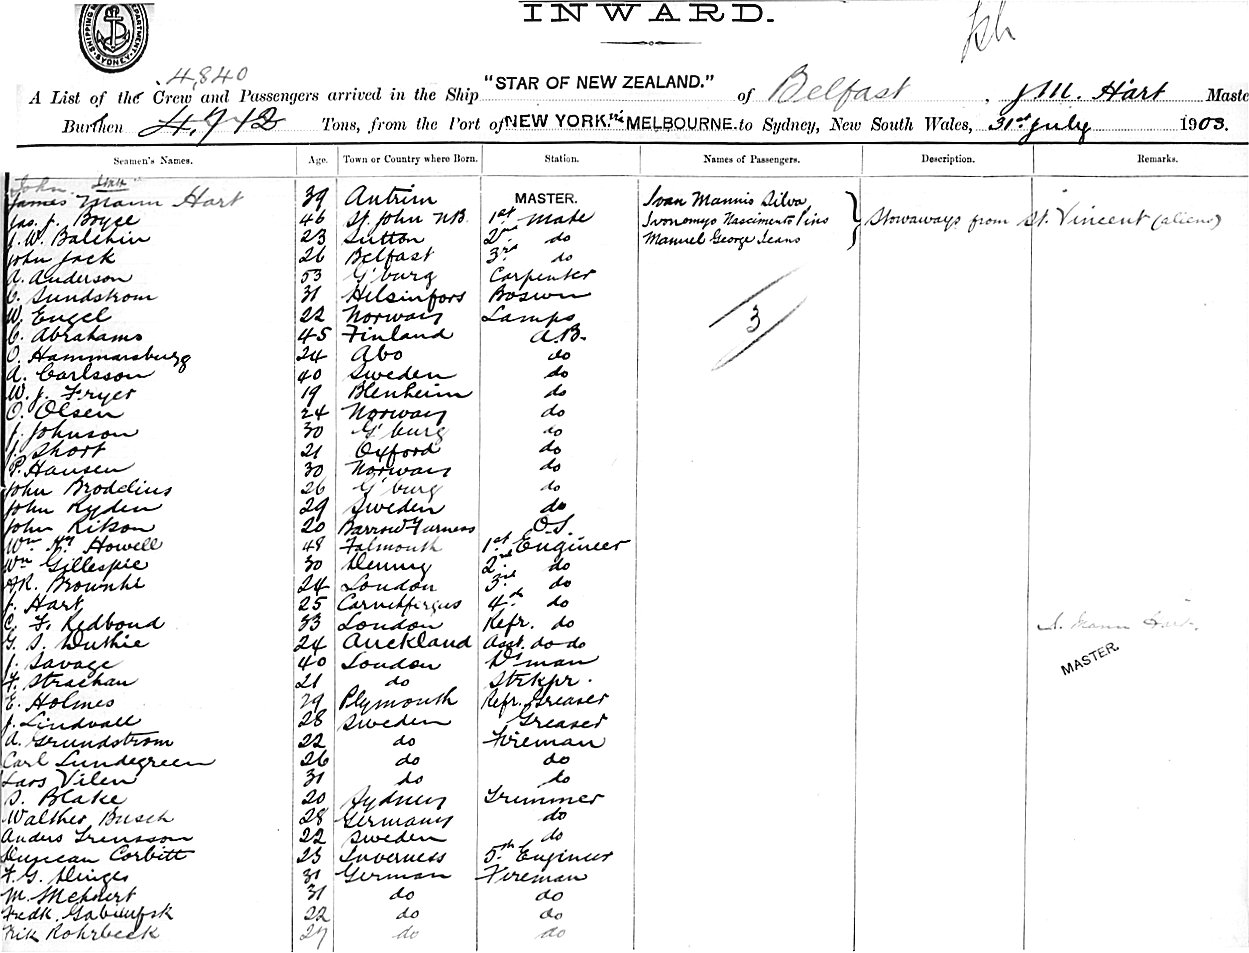 INWARD.
4,840
A List of the Crew and Passengers arrived in the Ship "STAR OF NEW ZEALAND." of Belfast, J M. Hart Maste
Burthen 4,712 Tons, from the Port of NEW YORK. via MELBOURNE. to Sydney, New South Wales, 31st July 1903.
Seamen's Names. Age. Town or Country where Born. Station. Names of Passengers. Description. Remarks.
John
James Mann Hart 39 Antrim MASTER. Ivan Mannis Silva
Jas. J. Boyce 46 St. John N.B. 1st Mate Ivonomyo Nascimento Pins Stowaways from St. Vincent (aliens)
J. W. Balchin 23 Sutton 2nd do Manuel George Jeans
John Jack 26 Belfast 3rd do
A. Anderson 53 G'burg Carpenter
C. Sundstrom 31 Helsinfors Boswn
W. Engel 22 Norway Lamps 3
C. Abrahams 45 Finland A.B.
O. Hammarsburg 24 Abo do
A. Carlsson 40 Sweden do
W. J. Fryer 19 Blenheim do
O. Olsen 24 Norway do
J. Johnson 30 G'burg do
J. Short 21 Oxford do
P. Hansen 30 Norway do
John Broddius 26 G'burg do
John Ryden 29 Sweden do
John Rikson 20 Barrow Furness O.S.
Wm. Hy. Howell 48 Falmouth 1st Engineer
Wm Gillespie 30 Denny 2nd do
A.R. Brownhl 24 London 3rd do
J. Hart 25 Carrickfergus 4th do
C. F. Redbond 33 London Refr. do
G. S. Duthie 24 Auckland Asst. do do J. Mann Hart.
J. Savage 40 London D'man MASTER.
F. Strachan 21 do Strkpr.
E. Holmes 29 Plymouth Refr. Greaser
J. Lindvall 28 Sweden Greaser
A. Grundstrom 22 do Fireman
Carl Lundegreen 26 do do
Lars Vilen 31 do do
S. Blake 20 Sydney Trimmer
Walther Busch 28 Germany do
Anders Trensson 22 Sweden do
Duncan Corbitt 23 Inverness 5th Engineer
F. G. Dinges 31 German Fireman
M. Mehnert 31 do do
Fredk. 22 do do
Frik Rohrbeck 27 do do